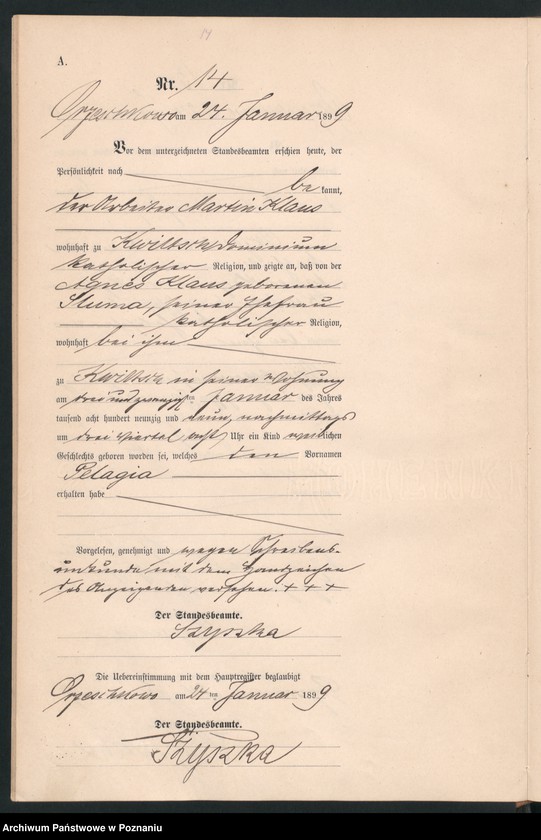 14
A.
Nr. 14
Orzeschkowo am 24. Januar 1899
Vor dem unterzeichneten Standesbeamten erschien heute, der
Persönlichkeit nach be kannt,
der Arbeiter Martin Klaus
wohnhaft zu Kwiltsch Dominium
katholischer Religion, und zeigte an, daß von der
Agnes Klaus geborenen
Sluma, seiner Ehefrau
katholischer Religion,
wohnhaft bei ihm
zu Kwiltsch in seiner Wohnung
am drei und zwanzigsten Januar des Jahres
tausend acht hundert neunzig und neun, nachmittags
um drei viertel acht Uhr ein Kind weiblichen
Geschlechts geboren worden sei, welches den Vornamen
Pelagia
erhalten habe
Vorgelesen, genehmigt und wegen Schreibens-
unkunde mit dem Handzeichen
des Anzeigenden versehen. + + +
Der Standesbeamte.
Szyszka
Die Uebereinstimmung mit dem Hauptregister beglaubigt
Orzeschkowo am 24 ten Januar 1899
Der Standesbeamte.
Szyszka
Archiwum Państwowe w Poznaniu